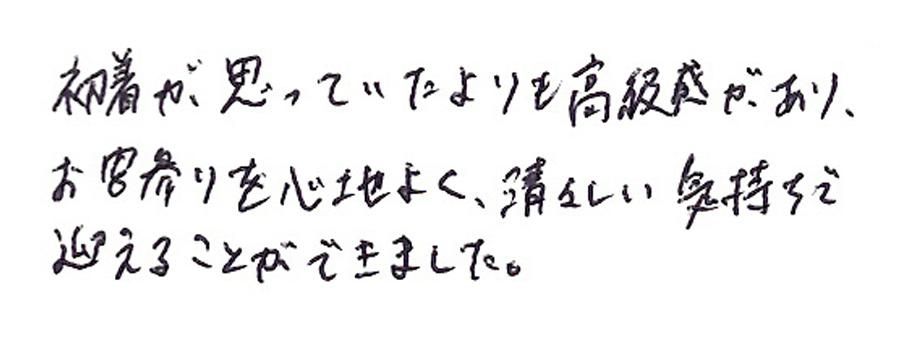 初着が、思っていたよりも高級感があり、
お宮参りを心地よく、清々しい気持ちで
迎えることができました。